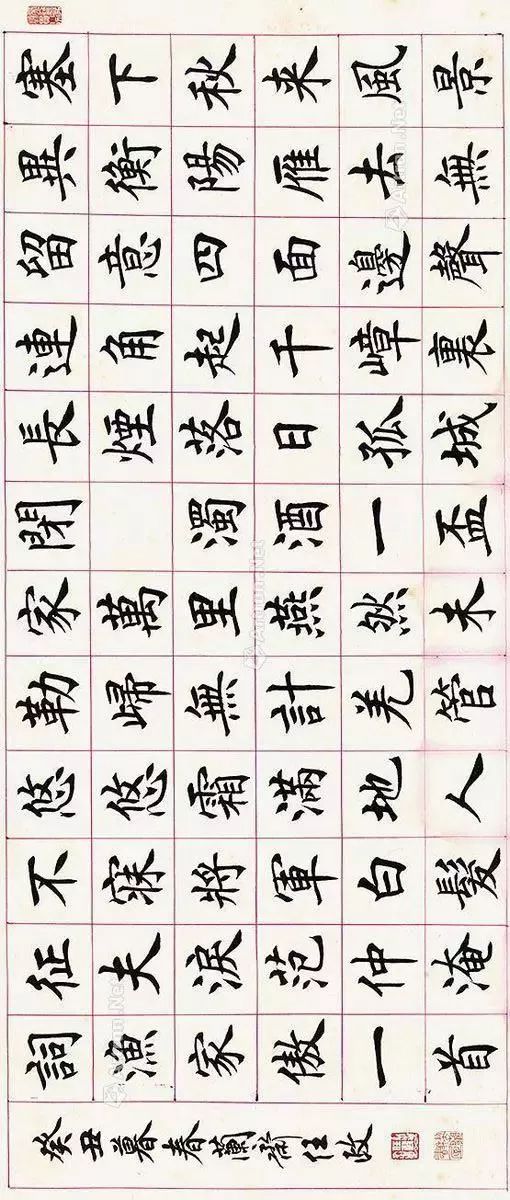 塞下秋来風景
異衡陽雁去無
留意四面邊聲
連角起千嶂裏
長煙落日孤城
閉 濁酒一盃
家萬里燕然未
勒歸無計羌管
悠悠霜滿地人
不寐將軍白髮
征夫淚范仲淹
詞漁家傲一首
癸丑暮春蘭任政